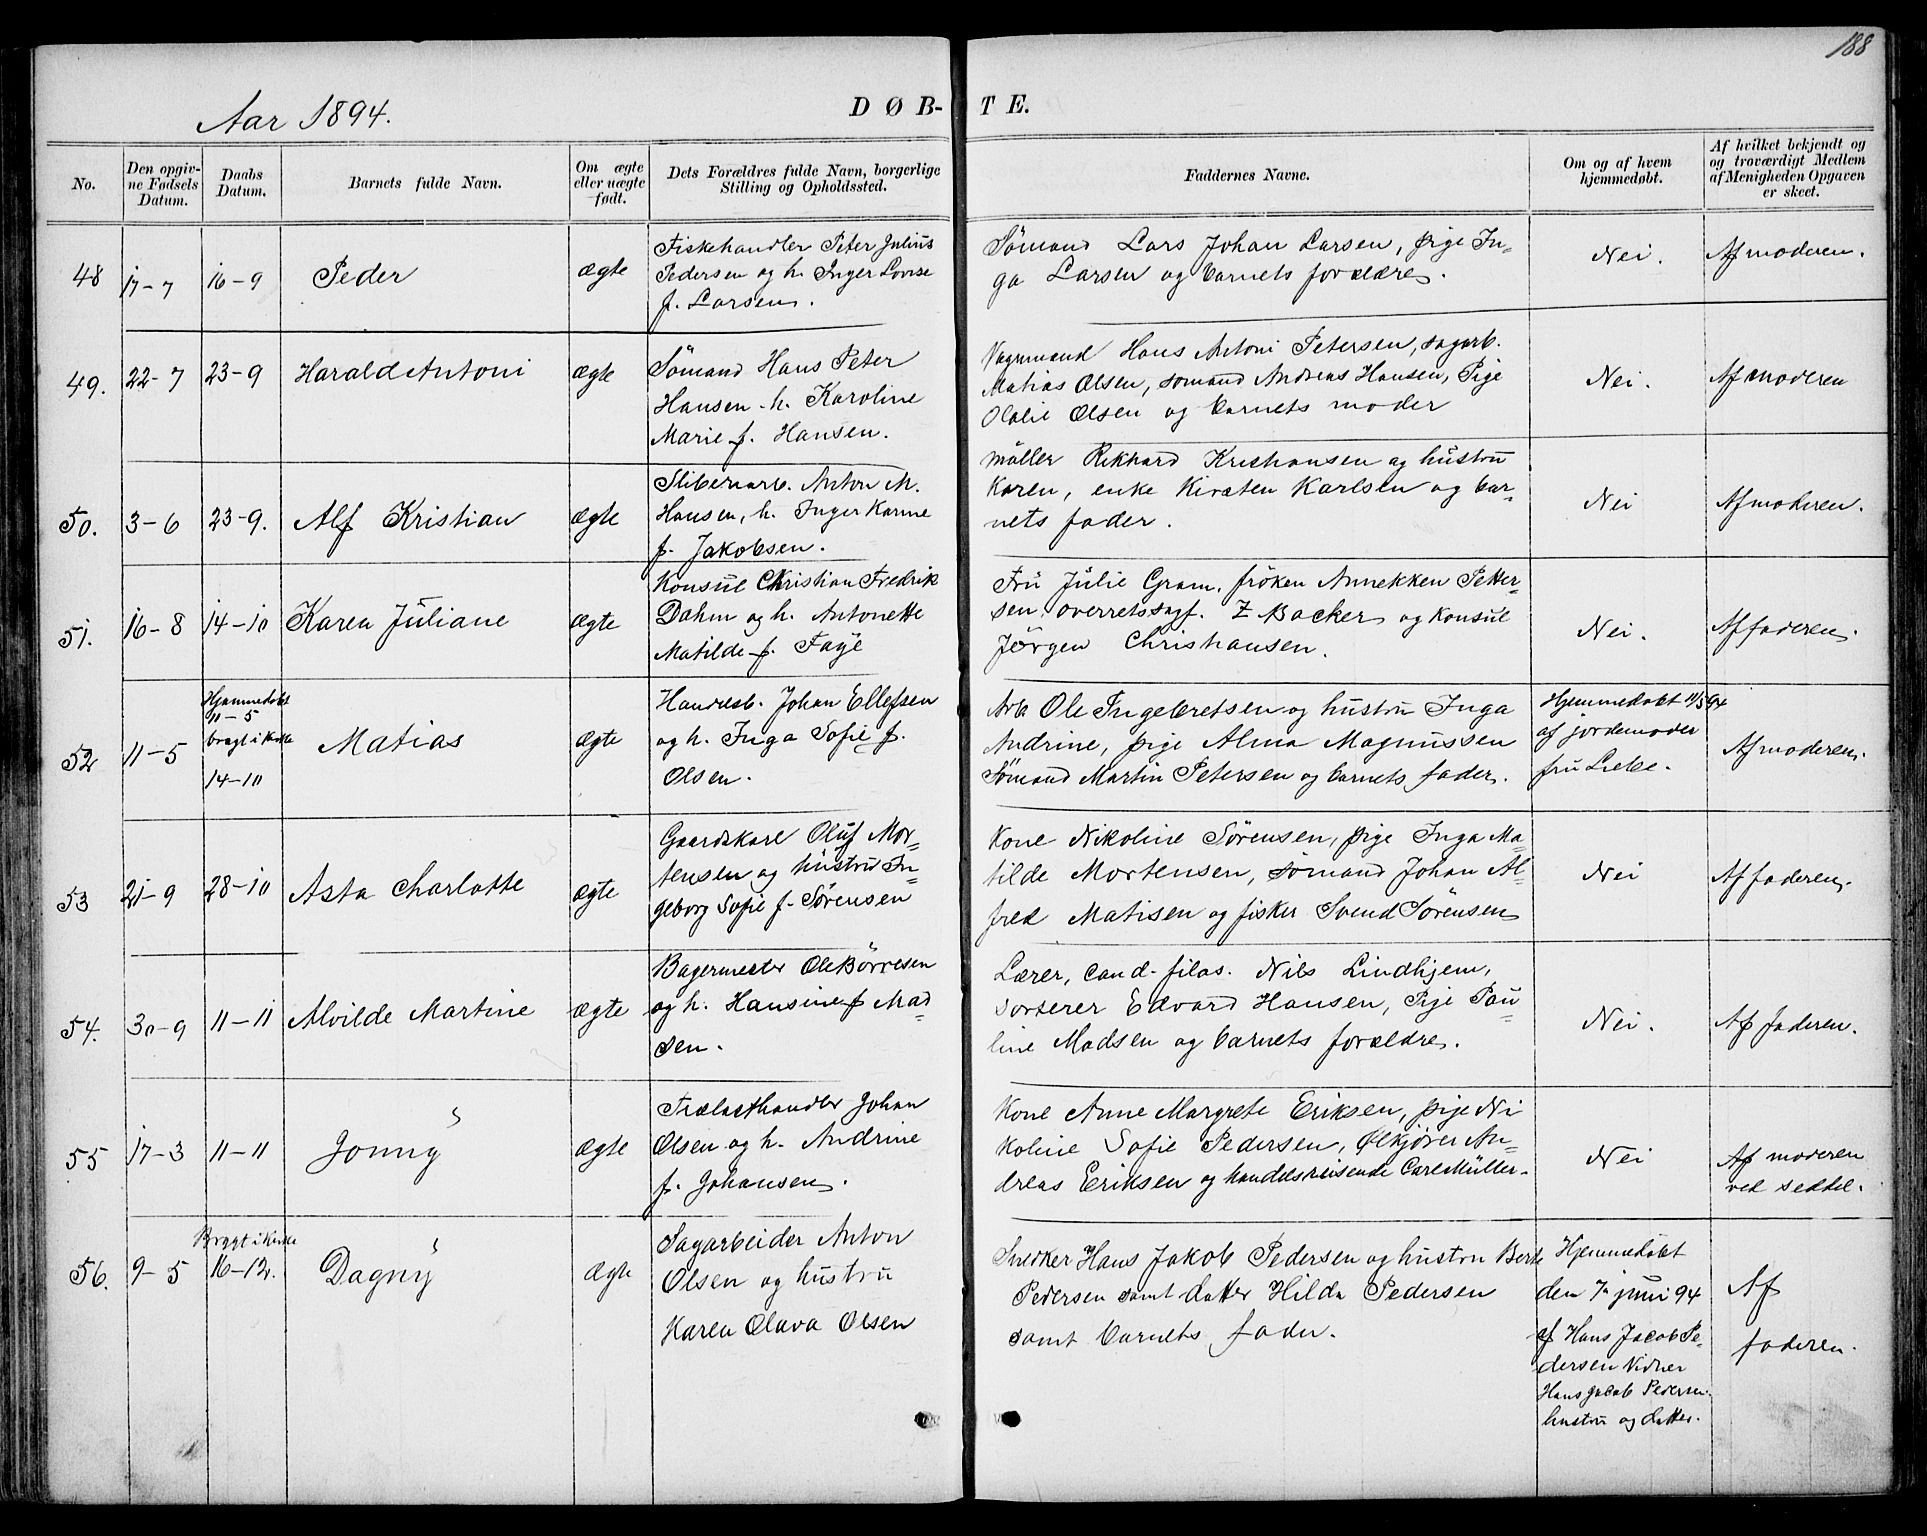 188
Aar 1894.
DØB-TE.
No.
Den opgiv-
ne Fødsels
Datum.
Daabs
Datum.
Barnets fulde Navn.
Om ægte
eller uægte
født.
Dets Forældres fulde Navn, borgerlige
Stilling og Opholdssted.
Faddernes Navne.
Om og af hvem
hjemmedøbt.
Af hvilket bekjendt og
og troværdigt Medlem
af Menigheden Opgaven
er skeet.
48
17-7
16-9
Peder
ægte
Fiskehandler Peter Julius
Pedersen og h. Inger Lovise
f. Larsen.
Sømand Lars Johan Larsen, pige In-
ga Larsen og barnets forældre.
Nei.
Af moderen.
49.
22-7
23-9
Harald Antoni
ægte
Sømand Hans Peter
Hansen. h. Karoline
Marie f. Hansen.
Hans Antoni Petersen, sagarb.
Matias Olsen, sømand Andreas Hansen, Pige
Olalie Olsen og barnets moder
Nei.
Af moderen
50.
3-6
23-9.
Alf Kristian
ægte
Sliberiarb. Anton M.
Hansen, h. Inger Karine
f. Jakobsen.
Møller Rikhard Kristiansen og hustru
Karen, enke Kirsten Karlsen og bar-
nets fader.
Nei
Af moderen.
51.
16-8
14-10
Karen Juliane
ægte
Konsul Christian Fredrik
Dahm og h. Antonette
Matilde f. Faye
Fru Julie Gram, frøken Annekken Petter-
sen, overretssagf. Z Backer og konsul
Jörgen Christiansen.
Nei.
Af faderen.
52
11-5
Hjemmedøbt
11-5
bragt i kirke
14-10
Matias
ægte
Johan Ellefsen
og h. Inga Sofie f.
Olsen.
Arb. Ole Ingebretsen og hustru Inga
Andrine, pige Alma Magnussen
Sømand Martin Petersen og barnets fader.
Hjemmedøbt 11/5 94
af jordemoder
fru
Af moderen.
53
21-9
28-10
Asta Charlotte
ægte
Gaardskarl Oluf Mor-
tensen og hustru In-
geborg Sofie f. Sørensen
Kone Nikoline Sørensen, pige Inga Ma-
tilde Mortensen, sømand Johan Al-
fred Matisen og fisker Svend Sörensen
Nei
Af faderen.
54.
30-9
11-11
Alvilde Martine
ægte
Bagermester Ole Børresen
og h. Hansine f Mad
sen.
Lærer, cand. filos. Nils Lindhjem,
sorterer Edvard Hansen, Pige Pau-
line Madsen og barnets forældre.
Nei.
Af faderen.
55
17-3
11-11
Jonny
ægte
Trælasthandler Johan
Olsen og h. Andrine
f. Johansen.
Kone Anne Margrete Eriksen, pige Ni
koline Sofie Pedersen, Ølkjører An-
dreas Eriksen og handelsreisende Carl Müller.
Nei
Af moderen
ved seddel.
56.
9-5
Bragt i kirke
16-12.
Dagny
ægte
Sagarbeider Anton
Olsen og hustru
Karen Olava Olsen
Snekker Hans Jakob Pedersen og hustru Berte
Pedersen samt datter Hilda Pedersen
samt barnets fader.
Hjemmedøbt
den 7 juni 94
af Hans Jacob Pe-
dersen Vidner
Hans Jacob Pedersen
hustru og datter.
Af
faderen.